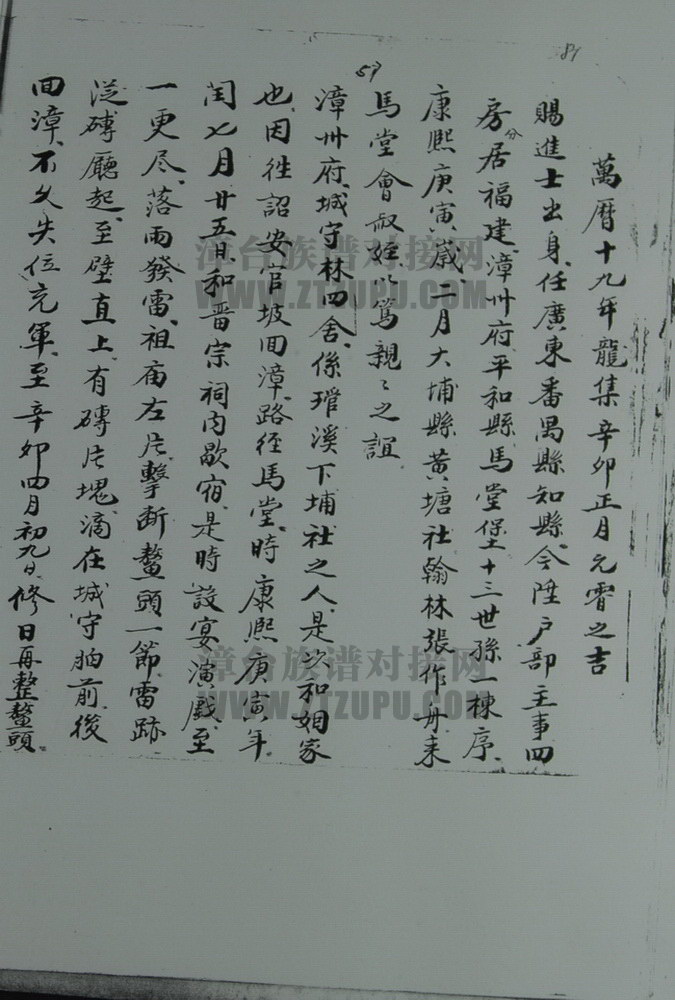 84
萬曆十九年龍集辛卯正月元宵之吉
賜進士出身、任廣東番禺縣知縣、今陞戶部主事四
房分居福建、漳州府平和縣馬堂堡十三世孫一棟序、
康熙庚寅歲、二月大埔縣黃塘社翰林張作舟来
57
馬堂會叔姪、以篤親ミ之誼
漳州府、城守林四舍、係琯溪下埔社之人、是坎和姻家
也、因徃詔安官坡回漳、路徑馬堂、時康熙庚寅年
閏七月廿五日、和晋宗祠内歇宿、是時設宴演戲、至
一更尽、落雨發雷、祖庙左片、擊断鰲頭一節、雷跡
從磚廳起、至壁直上、有磚片塊滴在城守胎前、後
回漳、不久失位充軍、至辛卯四月初九日、修日再整鰲頭。
漳台族谱对接网
WWW.ZTZUPU.COM
漳台族谱对接网
WWW.ZTZUPU.COM